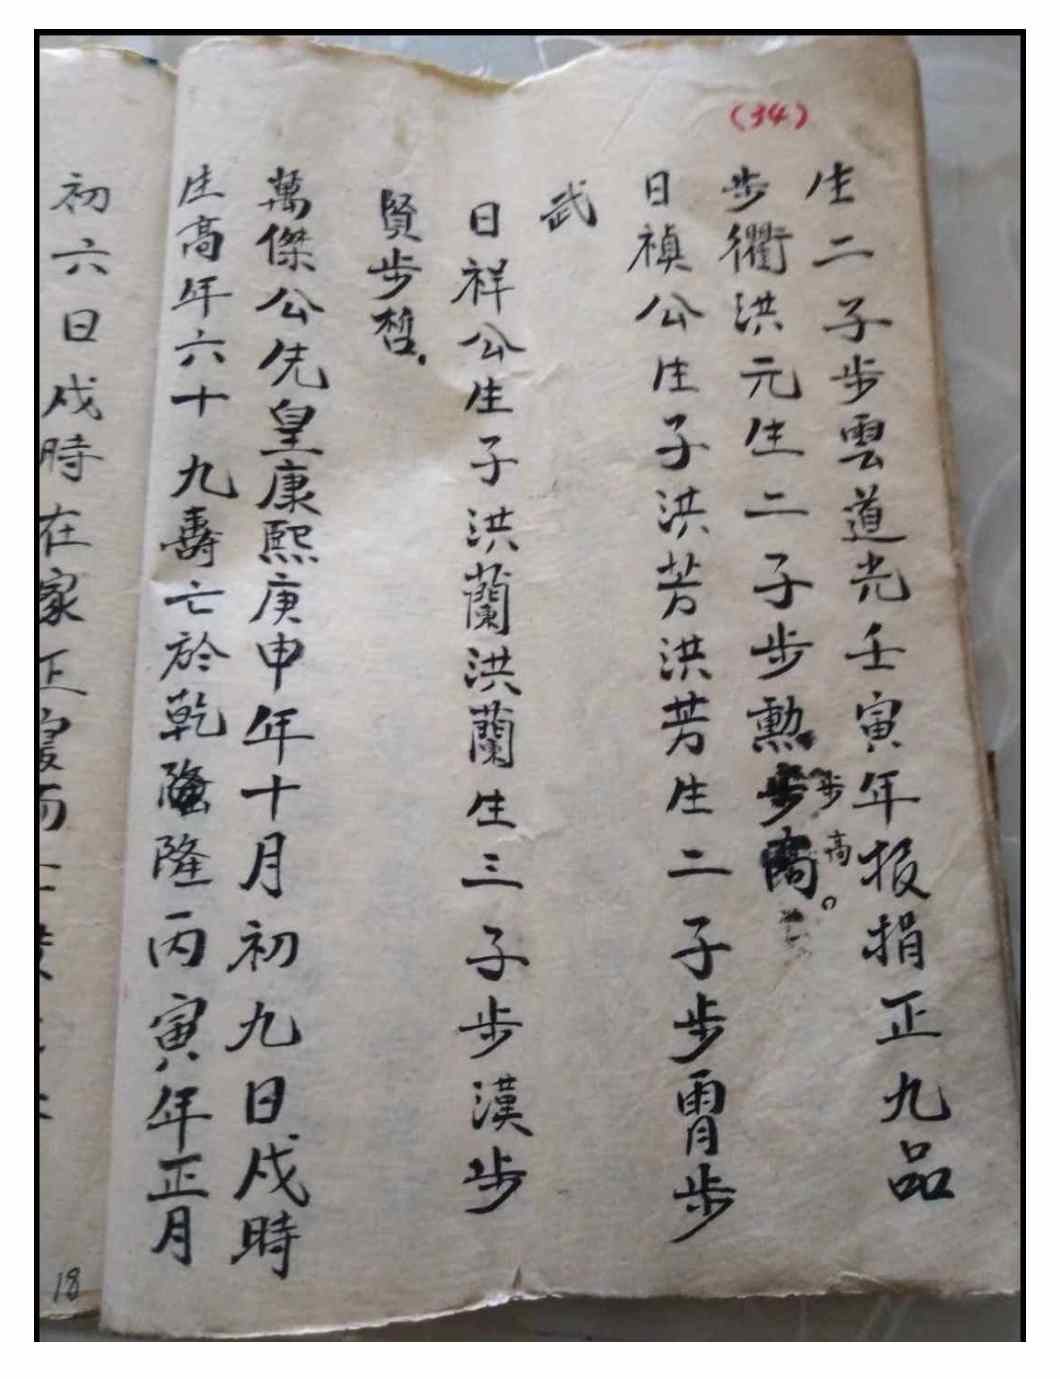 (34)
生二子步雲道光壬寅年报捐正九品
步衢洪元生二子步勲步高
步高。
日禎公生子洪芳洪芳生二子步胄步
武
日祥公生子洪蘭洪蘭生三子步漢步
賢步哲.
萬傑公先皇康熙庚申年十月初九日戍時
生高年六十九壽亡於乾隆丙寅年正月
初六日戍時在家正寢而
18